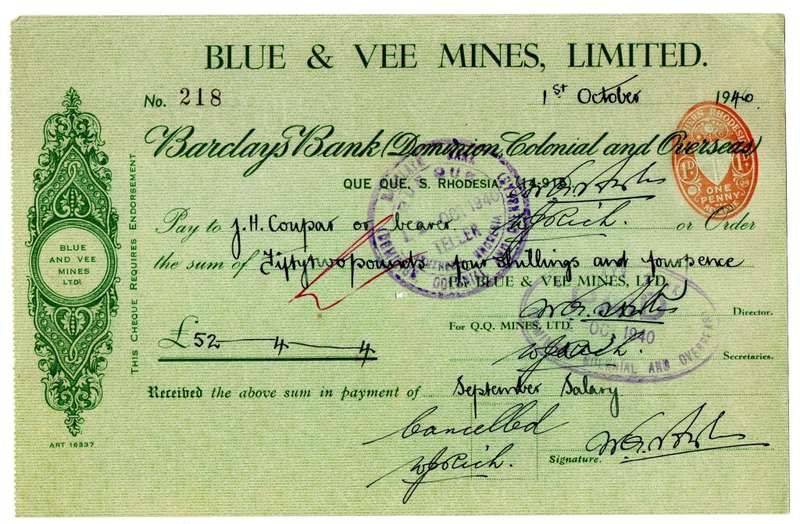 BLUE & VEE MINES, LIMITED.
No. 218
1st October 1940
Barclays Bank (Dominion, Colonial and Overseas)
QUE QUE, S. RHODESIA
Pay to J. H. Coupar or bearer or Order
the sum of Fiftytwo pounds four shillings and fourpence
For BLUE & VEE MINES, LTD.
Director.
£52 — 4 — 4
For Q.Q. MINES, LTD.
Secretaries.
Received the above sum in payment of September Salary
Cancelled
Signature.
THIS CHEQUE REQUIRES ENDORSEMENT
BLUE
AND VEE
MINES
LTD.
ART 16337
RHODESIA
1D 1D
ONE
PENNY
BANK
OCT 1940
TELLER
OCT 1940
COLONIAL AND OVERSEAS